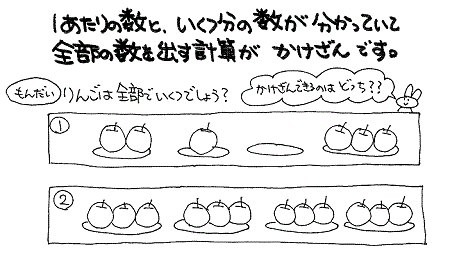 1あたりの数と、いくつ分の数が分かっていて
全部の数を出す計算が かけざんです。
もんだい りんごは全部でいくつでしょう?
かけざんできるのは どっち??
①
②